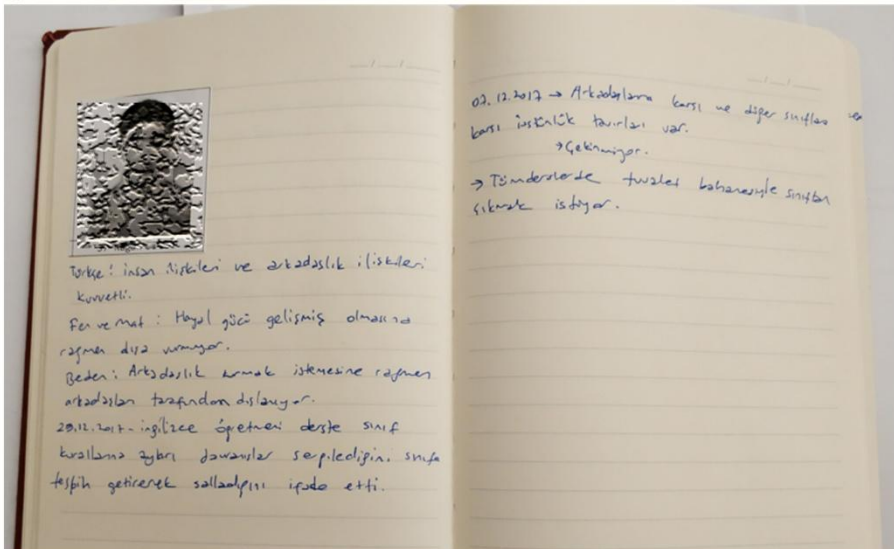 Türkçe: insan ilişkileri ve arkadaşlık ilişkileri
kuvvetli.
Fen ve Mat: Hayal gücü gelişmiş olmasına
rağmen dışa vurmuyor.
Beden: Arkadaşlık kurmak istemesine rağmen
arkadaşları tarafından dışlanıyor.
29.12.2017 - ingilizce öğretmeni derste sınıf
kurallarına aykırı davranışlar sergilediğini, sınıfa
tespih getirerek salladığını ifade etti.
07.12.2017 → Arkadaşlarına karşı ve diğer sınıflara
karşı üstünlük tavırları var.
→ Çekinmiyor.
→ Tüm derslerde tuvalet bahanesiyle sınıftan
çıkmak istiyor.